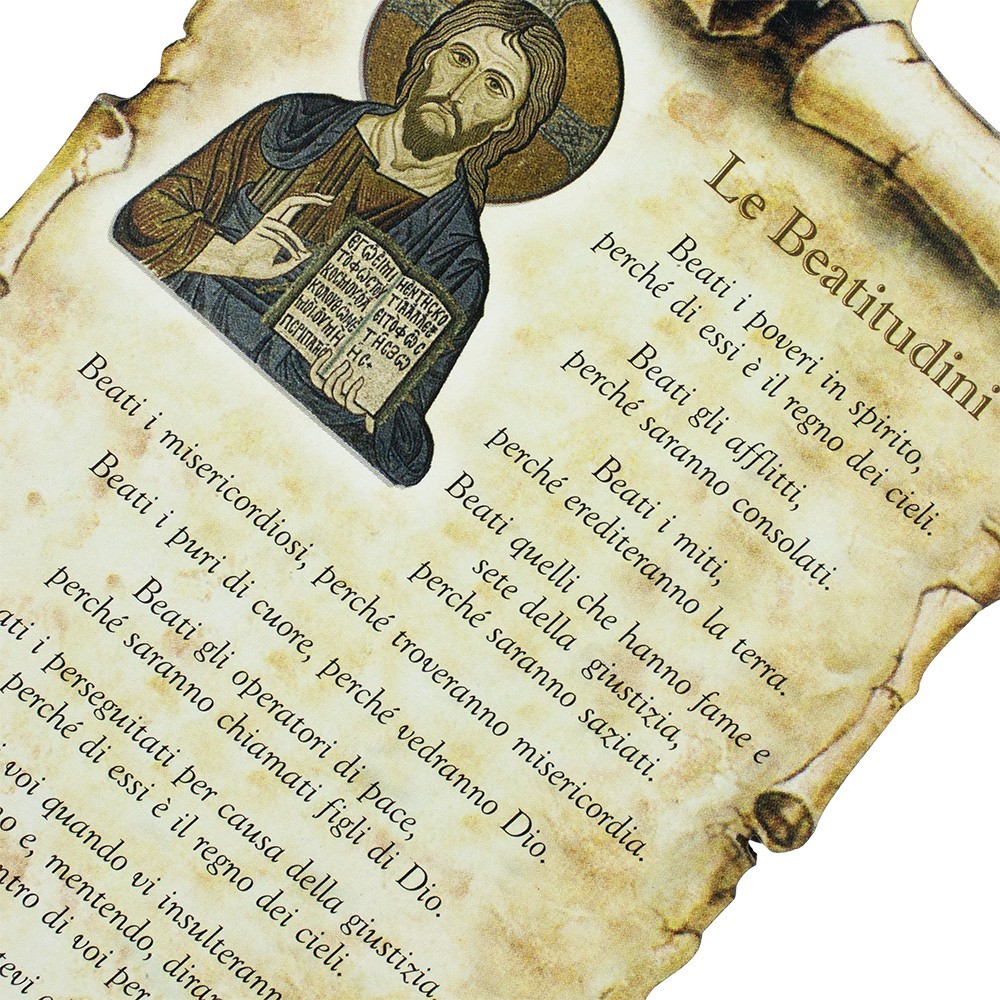 Le Beatitudini
Beati i poveri in spirito,
perché di essi è il regno dei cieli.
Beati gli afflitti,
perché saranno consolati.
Beati i miti,
perché erediteranno la terra.
Beati quelli che hanno fame e
sete della giustizia,
perché saranno saziati.
Beati i misericordiosi, perché troveranno misericordia.
Beati i puri di cuore, perché vedranno Dio.
Beati gli operatori di pace,
perché saranno chiamati figli di Dio.
ati i perseguitati per causa della giustizia,
perché di essi è il regno dei cieli.
voi quando vi insulterann
no e, mentendo, diran
ntro di voi per